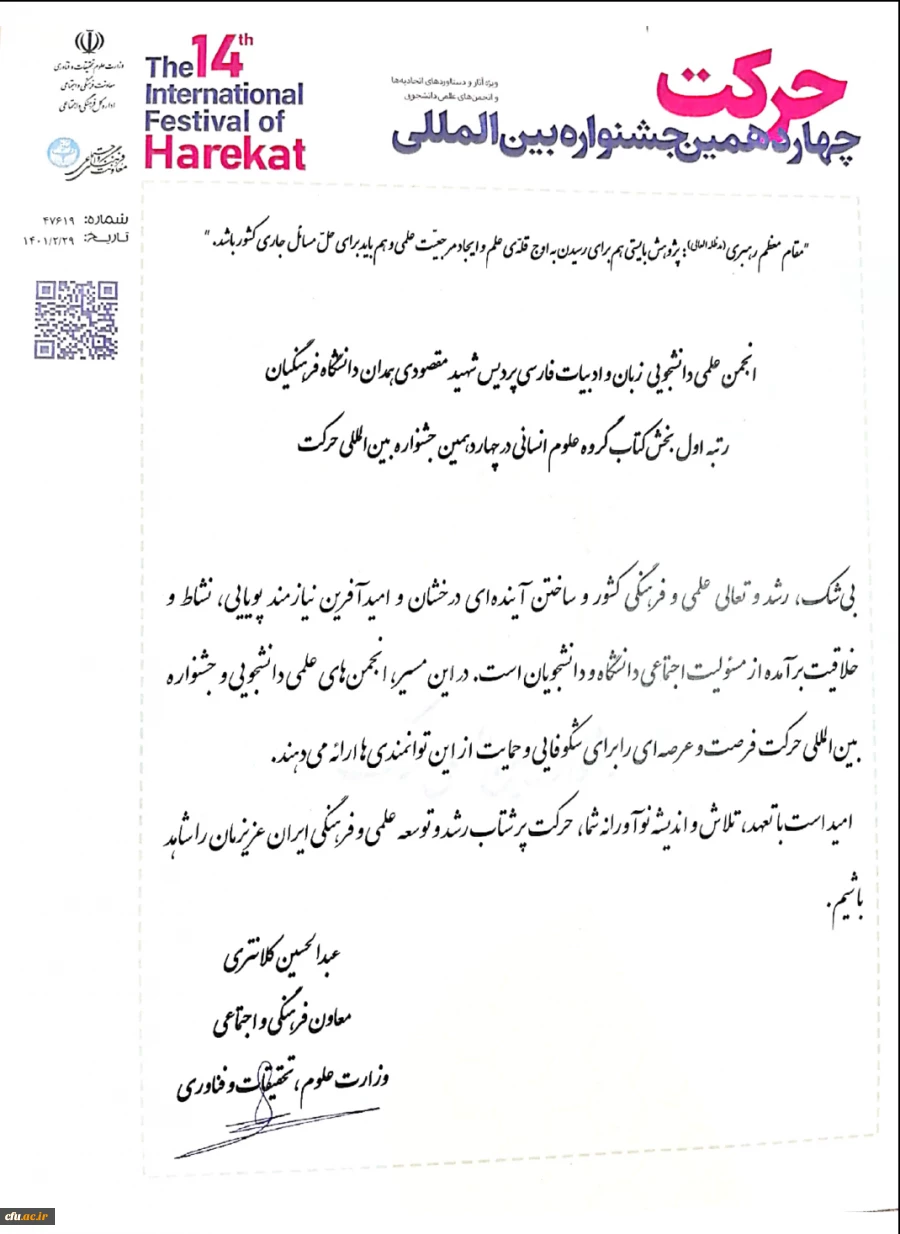 حرکت
ویژه آثار و دستاوردهای اتحادیه‌ها
و انجمن‌های علمی دانشجویی
چهاردهمین جشنواره بین‌المللی
The 14th
International
Festival of
Harekat
وزارت علوم تحقیقات و فناوری
معاونت فرهنگی و اجتماعی
اداره کل فرهنگی و اجتماعی
شماره: ۴۷۶۱۹
تاریخ: ۱۴۰۱/۲/۲۹
"مقام معظم رهبری (مدظله العالی): پژوهش بایستی هم برای رسیدن به اوج قله‌ی علم و ایجاد مرجعیّت علمی و هم باید برای حلّ مسائل جاری کشور باشد."
انجمن علمی دانشجویی زبان و ادبیات فارسی پردیس شهید مقصودی همدان دانشگاه فرهنگیان
رتبه اول بخش کتاب گروه علوم انسانی در چهاردهمین جشنواره بین المللی حرکت
بی‌شک، رشد و تعالی علمی و فرهنگی کشور و ساختن آینده‌ای درخشان و امیدآفرین نیازمند پویایی، نشاط و
خلاقیت برآمده از مسئولیت اجتماعی دانشگاه و دانشجویان است. در این مسیر، انجمن‌های علمی دانشجویی و جشنواره
بین المللی حرکت فرصت و عرصه‌ای را برای شکوفایی و حمایت از این توانمندی‌ها ارائه می‌دهند.
امید است با تعهد، تلاش و اندیشه نوآورانه شما، حرکت پرشتاب رشد و توسعه علمی و فرهنگی ایران عزیزمان را شاهد
باشیم.
عبدالحسین کلانتری
معاون فرهنگی و اجتماعی
وزارت علوم، تحقیقات و فناوری
cfu.ac.ir